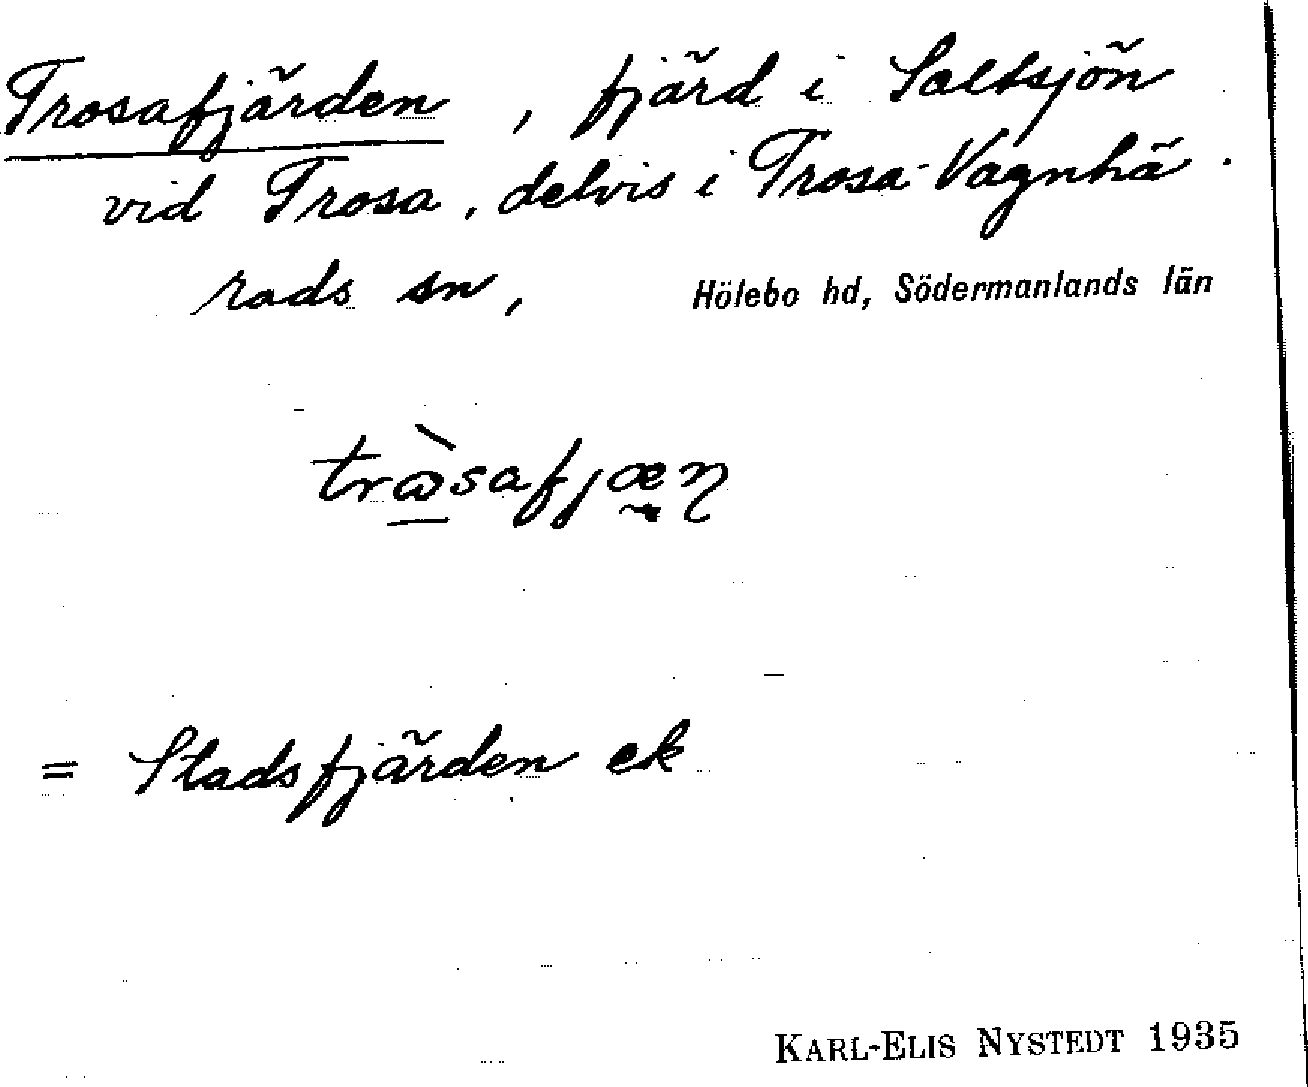 Trosafjärden, fjärd i Saltsjön
vid Trosa, delvis i Trosa-Vagnhä-
rads sn, Hölebo hd, Södermanlands län
= Stadsfjärden ek
KARL-ELIS NYSTEDT 1935